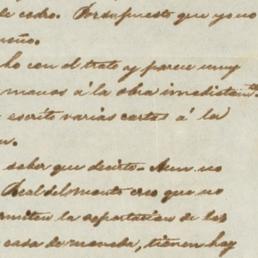 de cedro. Por supuesto que yo no
ho con el trato y parece muy
manos á la obra inmediatam
escrito varias cartas á la
n.
saber que decirte. Aun no
Real del Monte creo que no
permiten la esportacion de los
casa de moneda, tienen hay